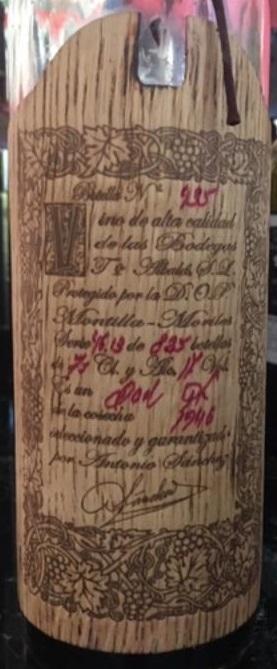 Botella Nº 225
Vino de alta calidad
de las Bodegas
Tº Albalá, S.L.
Protegido por la D.O.P
Montilla-Moriles
Serie de 825 botellas
de 75 Cl. y Alc. 17 % Vol.
Es un Don PX
de la cosecha 1946
seleccionado y garantizado
por Antonio Sánchez